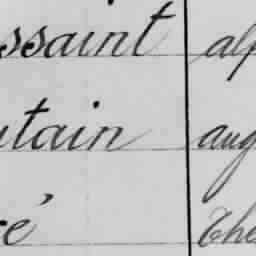 ssaint alp
tain aug
é The